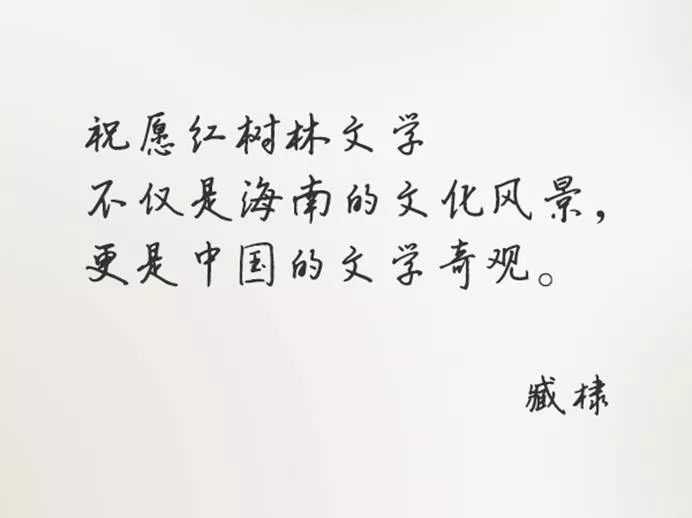 祝愿红树林文学
不仅是海南的文化风景，
更是中国的文学奇观。
臧棣